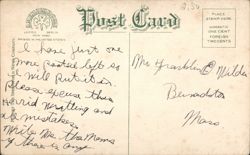 Post Card
PLACE
STAMP HERE
DOMESTIC
ONE CENT
FOREIGN
TWO CENTS
I have just one
more postal left so
I will put it in.
please excuse this
horrid writing and
all mistakes
Write Me the Mama
if there is any
Mr Franklin E Wilder
Bernardston
Mass